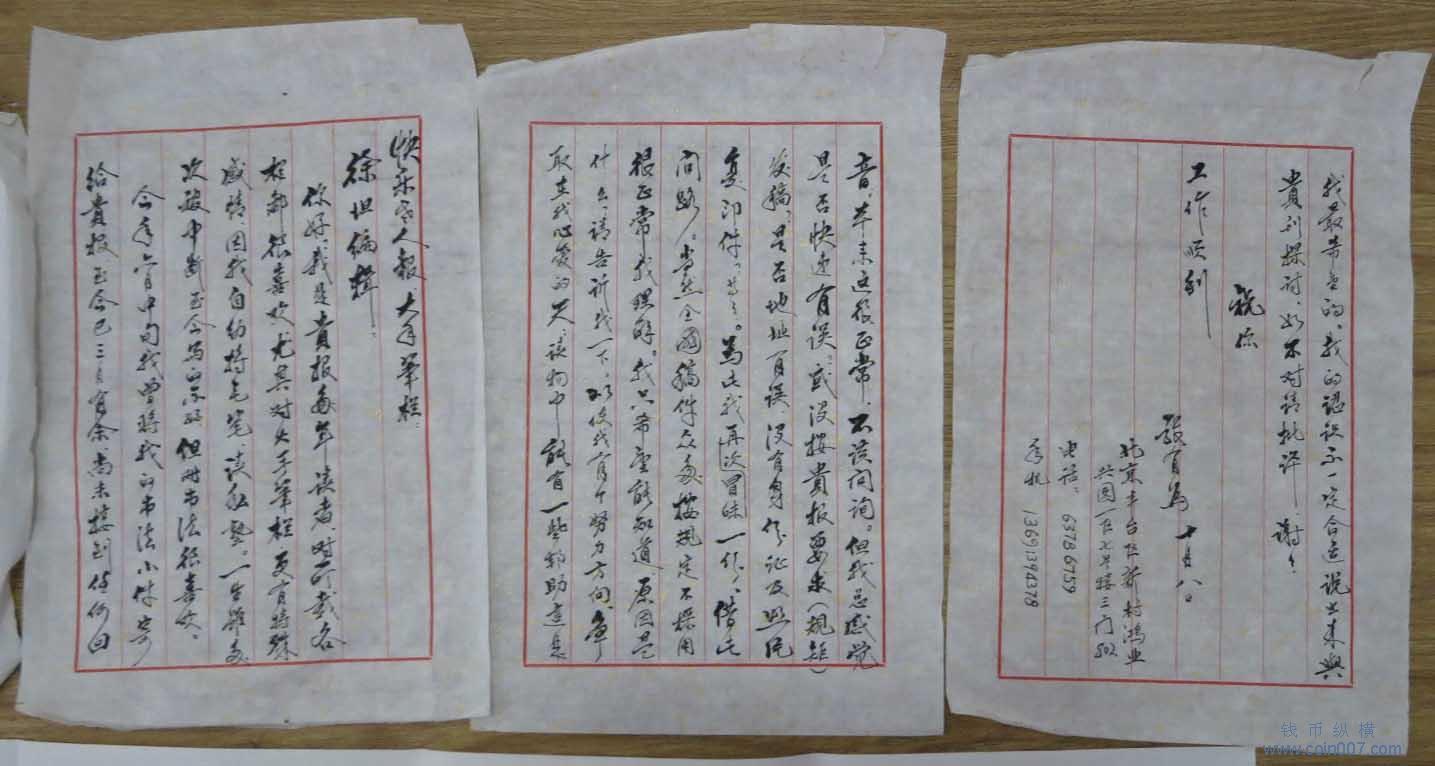 快乐老人报，大手笔栏：
徐坦编辑：
你好，我是贵报多年读者，对所载各
栏都很喜欢尤其对大手笔栏更有特殊
感情，因我自幼持毛笔，读私塾。一生虽多
次被中断至今写字不好但对书法很喜欢。
今年六月中旬我曾将我的书法小体寄
给贵报至今已三月有余尚未接到任何回
音，本来这很正常，不该问询。但我总感觉
是否快速有误；或没按贵报要求（规矩）
发稿；是否地址有误，没有身份证及照片
复印件，等等。为此我再次冒昧一份，借此
问路。当然全国稿件众多按规定不採用
很正常我理解。我只希望能知道原因是
什么，请告诉我一下，以后我有个努力方向，争
取在我心爱的 读物中能有一些帮助这是
我最希望的，我的认识不一定合适说出来与
贵刊探讨，如不对请批评！谢谢
祝您
工作顺利
敬有为 十月八日
北京丰台区新村鸿业
兴园一区七号楼三门502
电话： 63786759
手机 13693194378
钱币纵横
www.coin007.com